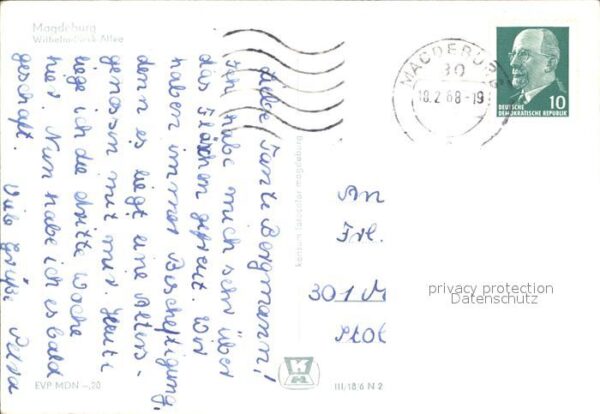 Magdeburg
Wilhelm-Pieck-Allee
Liebe Tante Bergmann!
Ich habe mich sehr über
das Fläschen gefreut. Wir
haben immer Bescheftigung,
denn es liegt eine Alters-
genossin mit mir. Heute
liege ich die dritte Woche
hier. Nun habe ich es bald
geschaft. Viele Grüße Petra
EVP MDN -,20
konsum fotocenter magdeburg
MAGDEBURG
30
18.2.68-19
DEUTSCHE
DEMOKRATISCHE REPUBLIK
10
An
Frl.
301 M
privacy protection
Datenschutz
III/18/6 N 2